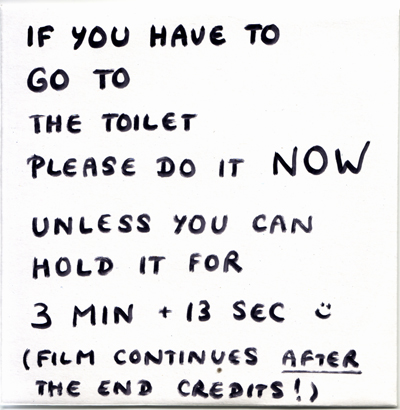 IF YOU HAVE TO
GO TO
THE TOILET
PLEASE DO IT NOW
UNLESS YOU CAN
HOLD IT FOR
3 MIN + 13 SEC :)
(FILM CONTINUES AFTER
THE END CREDITS!)